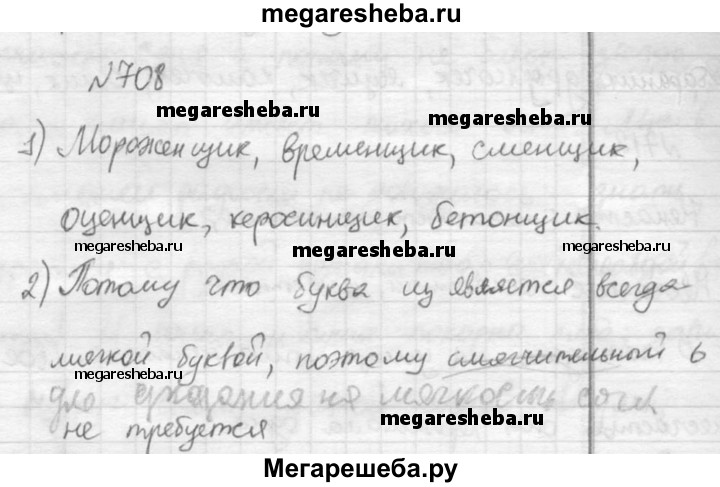 megaresheba.ru
№708
megaresheba.ru
megaresheba.ru
1) Мороженщик, временщик, сменщик,
оценщик, керосинщик, бетонщик.
megaresheba.ru
megaresheba.ru
megaresheba.ru
2) Потому что буква щ является всегда
мягкой буквой, поэтому смягчительный ь
megaresheba.ru
для на мягкость
megaresheba.ru
не требуется
Мегарешеба.ру